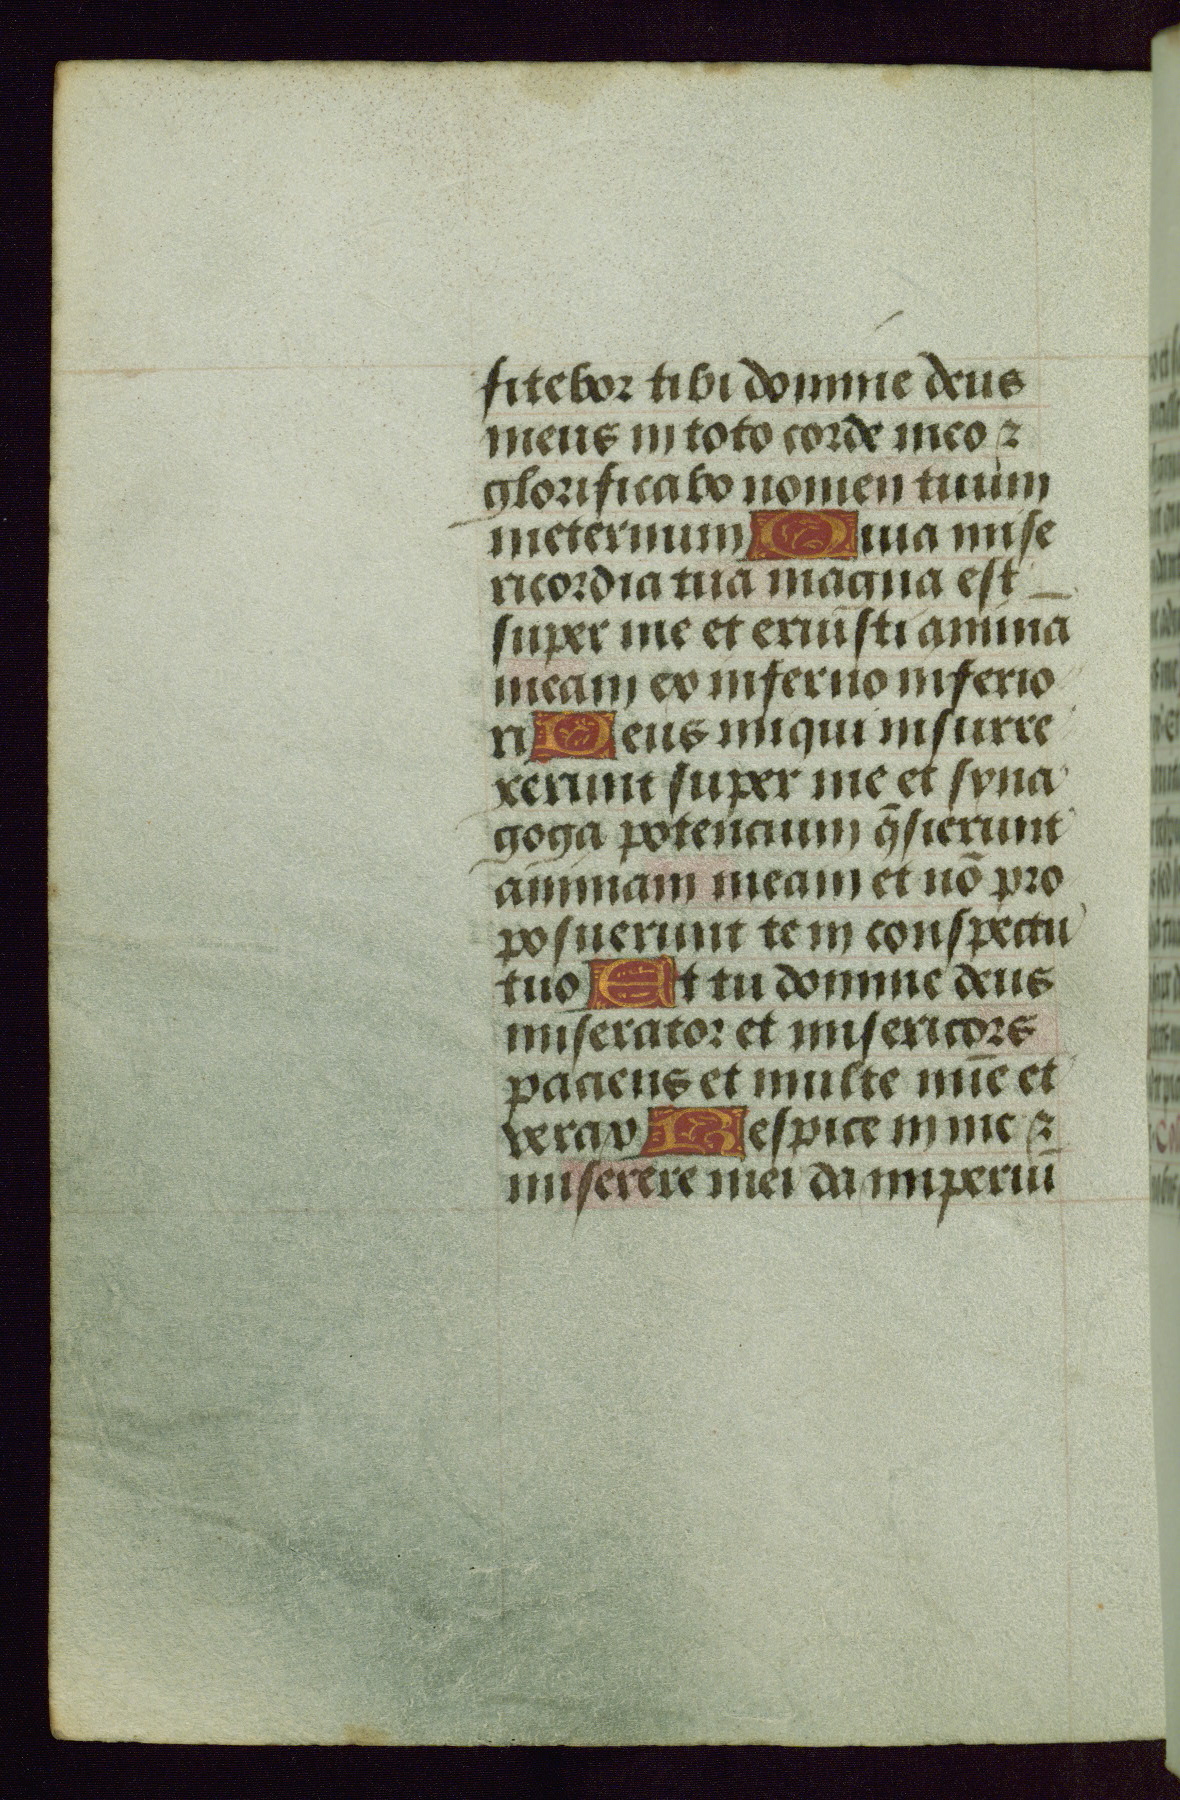 fitebor tibi domine deus
meus in toto corde meo ⁊
glorificabo nomen tuum
ineternum Quia mise
ricordia tua magna est
super me et eruisti animā
meam ex inferno inferio
ri Deus iniqui insurre
xerunt super me et syna
goga potencium q̄sierunt
animam meam et nō pro
posuerunt te in conspectu
tuo Et tu domine deus
miserator et misericors
paciens et multe mīe et
verax Respice in me ⁊
miserere mei da imperiū